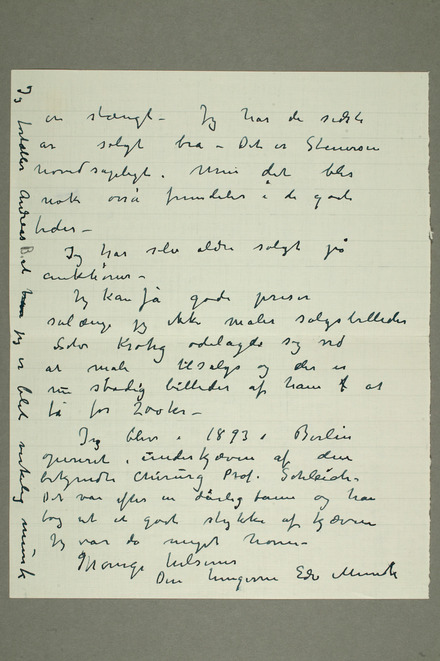 er stængt – Jeg har de sidste
år solgt bra – Det er Stenersen
hovedsagelig. Men det blev
nok også fremdeles i de gode
tider –
Jeg har selv aldri solgt på
auktioner –
Jeg kan få gode priser
salænge jeg ikke maler salgsbilleder
Krohg ødelagde sig ved
at male tilsalgs og der er
nu stadig billeder af ham at
få for 200 kr –
Jeg blev i 1893 i Berlin
opereret i underkjæven af den
bekjendte Chirurg Prof. Schleich –
Det var efter en dårlig tann og han
tog ut et godt stykke af kjæven
Jeg var da meget hoven –
Mange hilsener
Din hengivne Edv Munch
Jeg fortæller Andreas B. at jeg er blet